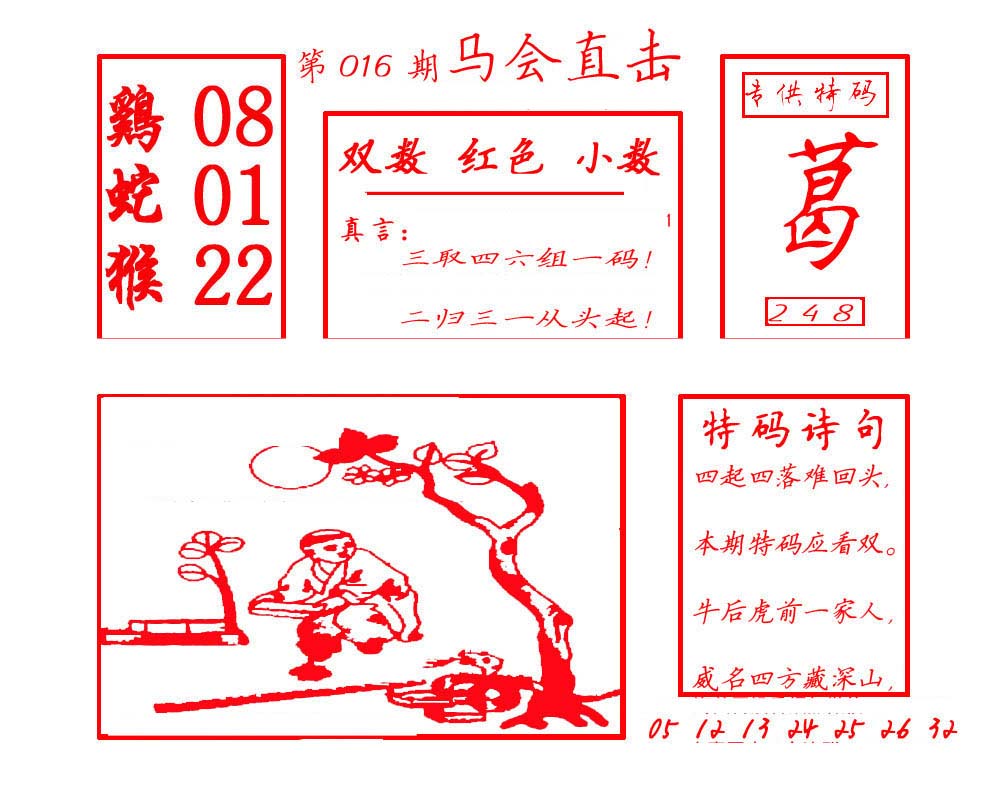 第 016 期 马会直击
鷄 08
蛇 01
猴 22
双数 红色 小数
真言：
三取四六组一码！
二归三一从头起！
专供特码
葛
2 4 8
特码诗句
四起四落难回头，
本期特码应看双。
牛后虎前一家人，
威名四方藏深山，
05 12 13 24 25 26 32